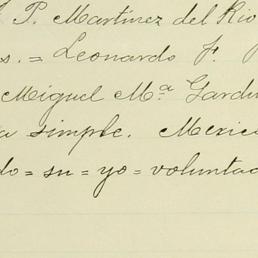 P. Martinez del Rio
s. = Leonardo F.
Miguel Mª Gardu
a simple. Mexic
do = su = yo = voluntad